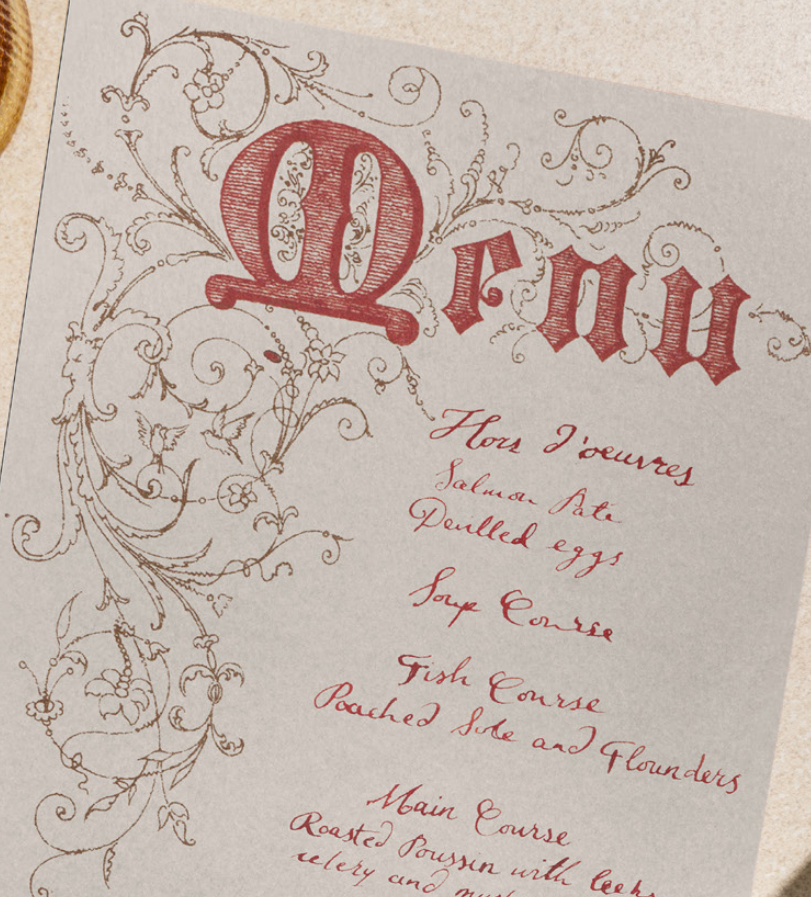 Menu
Hors d'oeuvres
Salmon Pate
Devilled eggs
Soup Course
Fish Course
Poached Sole and Flounders
Main Course
Roasted Poussin with leeks
celery and